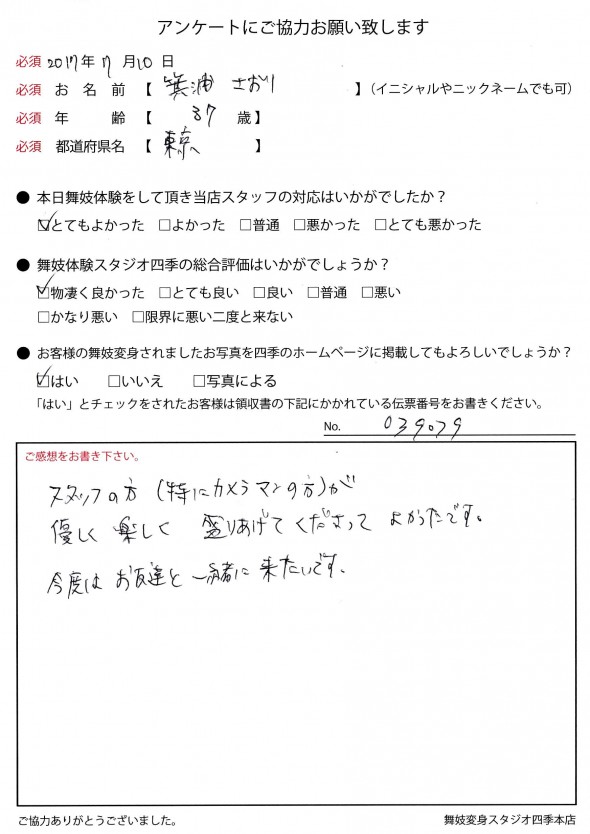 アンケートにご協力お願い致します
必須 2017年 7 月 10 日
必須 お 名 前 【 箕浦 さおり 】(イニシャルやニックネームでも可)
必須 年 齢 【 37 歳】
必須 都道府県名 【 東京 】
● 本日舞妓体験をして頂き当店スタッフの対応はいかがでしたか?
☑とてもよかった □よかった □普通 □悪かった □とても悪かった
● 舞妓体験スタジオ四季の総合評価はいかがでしょうか?
☑物凄く良かった □とても良い □良い □普通 □悪い
□かなり悪い □限界に悪い二度と来ない
● お客様の舞妓変身されましたお写真を四季のホームページに掲載してもよろしいでしょうか?
☑はい □いいえ □写真による
「はい」とチェックをされたお客様は領収書の下記にかかれている伝票番号をお書きください。
No. 039079
ご感想をお書き下さい。
スタッフの方(特にカメラマンの方)が
優しく 楽しく 盛りあげて くださって よかったです。
今度は お友達と 一緒に 来たいです。
ご協力ありがとうございました。
舞妓変身スタジオ四季本店